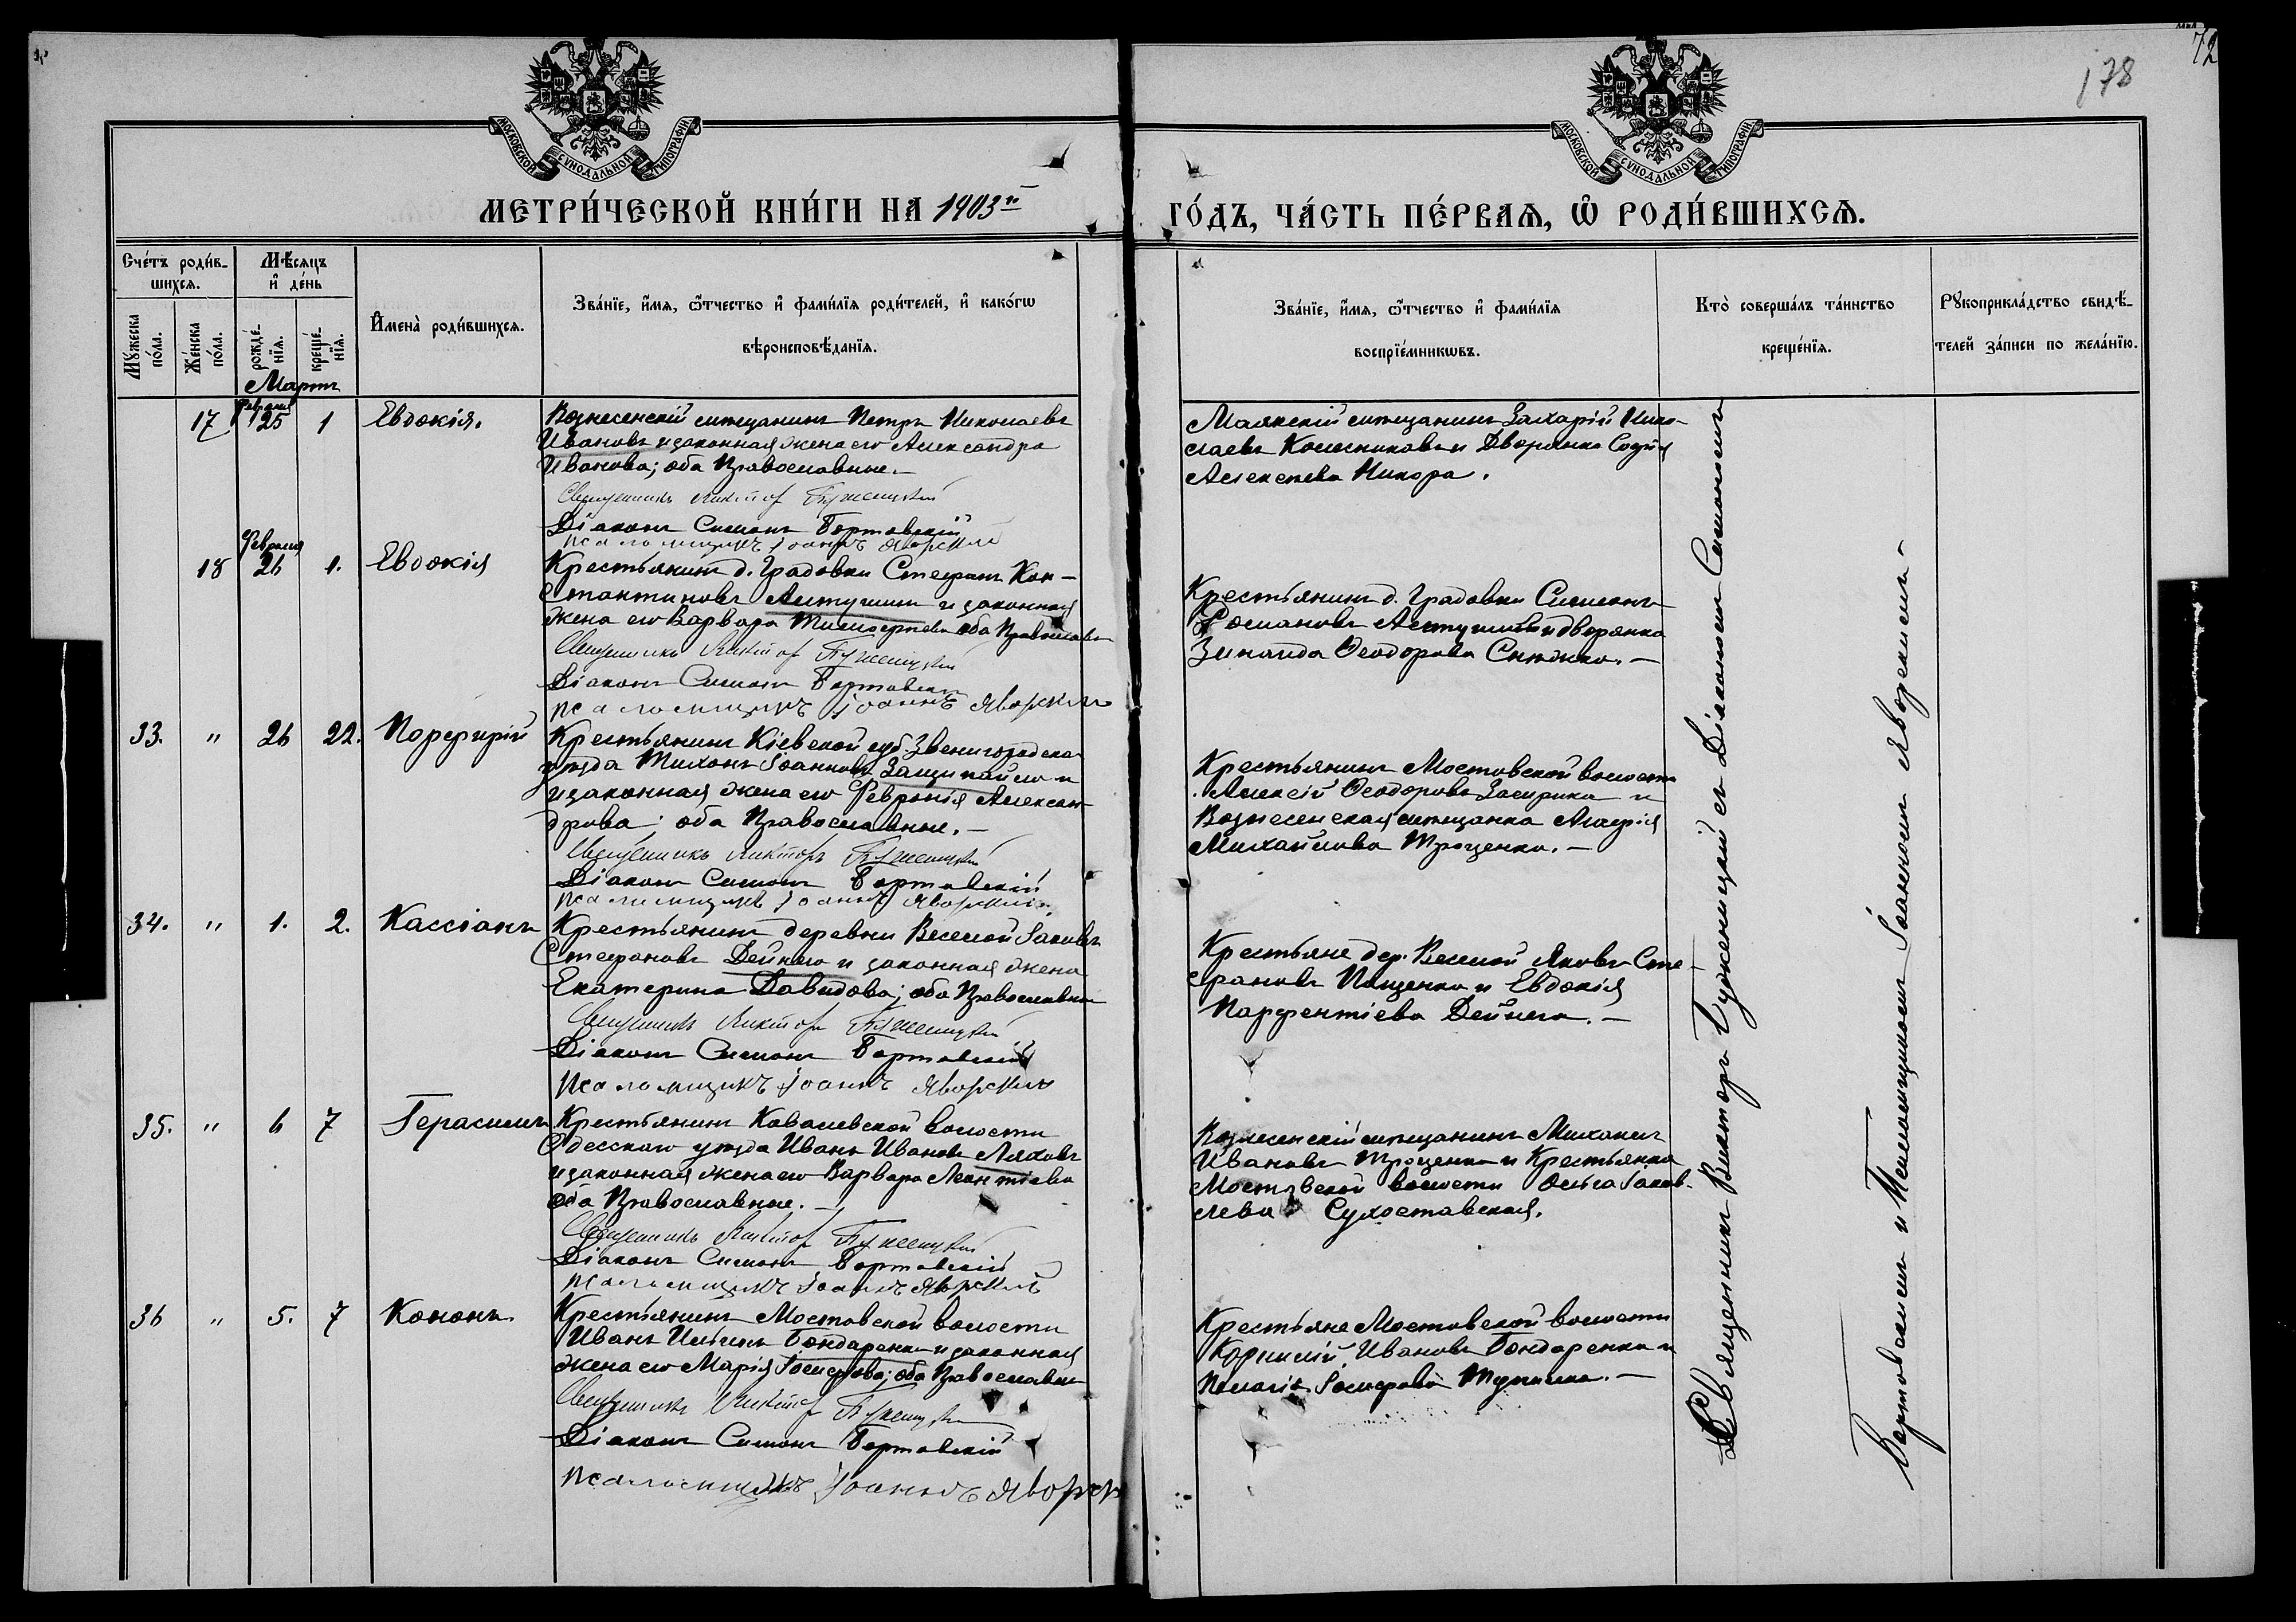 178
72
МОСКОВСКОЙ СѴНОДАЛЬНОЙ ТИПОГРАФІИ
МОСКОВСКОЙ СѴНОДАЛЬНОЙ ТИПОГРАФІИ
МЕТРИ́ЧЕСКОЙ КНИ́ГИ НА 1903й
ГО́ДЪ, ЧА́СТЬ ПЕ́РВАѦ, Ѡ҆ РОДИ́ВШИХСѦ.
Сче́тъ роди́в-
шихсѧ.
Мꙋ́жеска по́ла.
Же́нска по́ла.
Мѣ́сѧцъ
и҆ де́нь
рожде́-
нїѧ.
креще́-
нїѧ.
И҆мена̀ роди́вшихсѧ.
Зва́нїе, и҆́мѧ, ѻ҆́тчество и҆ фами́лїѧ роди́телей, и҆ како́гѡ
вѣроисповѣ́данїѧ.
Зва́нїе, и҆́мѧ, ѻ҆́тчество и҆ фами́лїѧ
воспрїе́мникѡвъ.
Кто̀ соверша́лъ та́инство
креще́нїѧ.
Рꙋкоприкла́дство свидѣ́-
телей за́писи по жела́нїю.
Мартъ
17 Февраля 25 1 Евдокія.
Вознесенскій мѣщанинъ Петръ Николаевъ
Ивановъ и законная жена его Александра
Иванова; оба Православные.—
Священникъ Викторъ Бужениц­кій
Діаконъ Симонъ Бортовскій
Псаломщикъ Іоаннъ Яворскій
Маякскій мѣщанинъ Захарій Нико-
лаевъ Колесниковъ и Дворянка Софія
Алексѣева Никора.
18 Февраля 26 1. Евдокія
Крестьянинъ д. Градовки Стефанъ Кон-
стантиновъ и законная
жена его Варвара Тимофеева оба Православн
Священникъ Викторъ Буженицкій
Діаконъ Симонъ Бортовскій
Псаломщикъ Іоаннъ Яворскій
Крестьянинъ д. Градовки Симеонъ
Романовъ и дворянка
Зинаида Ѳеодорова Снѣжко.—
33. " 26 22. Порфирій
Крестьянинъ Кіевской губ. Звенигородска
уѣзда Тихонъ Іоанновъ Защипайло и
и законная жена его Февронія Алексан-
дрова; оба Православные.—
Священникъ Викторъ Буженицкій
Діаконъ Симонъ Бортовскій
Псаломщикъ Іоаннъ Яворскій
Крестьянинъ Мостовской волости
Алексій Ѳеодоровъ и
Вознесенская мѣщанка Агафія
Михайлова Троценко.—
34. " 1. 2. Кассіанъ
Крестьянинъ деревни Веселой Іаковъ
Стефановъ Дейнега и законная жена
Екатерина Давидова; оба Православные
Священникъ Викторъ Буженицкій
Діаконъ Симонъ Бортовскій
Псаломщикъ Іоаннъ Яворскій
Крестьяне дер. Веселой Яковъ Сте-
фановъ Пащенко и Евдокія
Парфентіева Дейнега.—
35. " 6 7 Герасимъ
Крестьянинъ Ковалевской волости
Одесскаго уѣзда Иванъ Ивановъ Ляховъ
и законная жена его Варвара Леонтіева
оба Православные.—
Священникъ Викторъ Буженицкій
Діаконъ Симонъ Бортовскій
Псаломщикъ Іоаннъ Яворскій
Вознесенскій мѣщанинъ Михаилъ
Ивановъ Троценко и Крестьянка
Мостовской волости Ольга Іаков-
лева Сухоставская.
36 " 5. 7 Кононъ.
Крестьянинъ Мостовской волости
Иванъ Ильинъ Бондаренко и законная
жена его Марія Іосифова; оба Православные
Священникъ Викторъ Буженицкій
Діаконъ Симонъ Бортовскій
Псаломщикъ Іоаннъ Яворск
Крестьяне Мостовской волости
Корнилій Ивановъ Бондаренко и
Пелагія Іосифова
Священникъ Викторъ Буженицкій съ Діакономъ Симономъ
Бортовскимъ и Псаломщикомъ Іоанномъ Яворскимъ.—